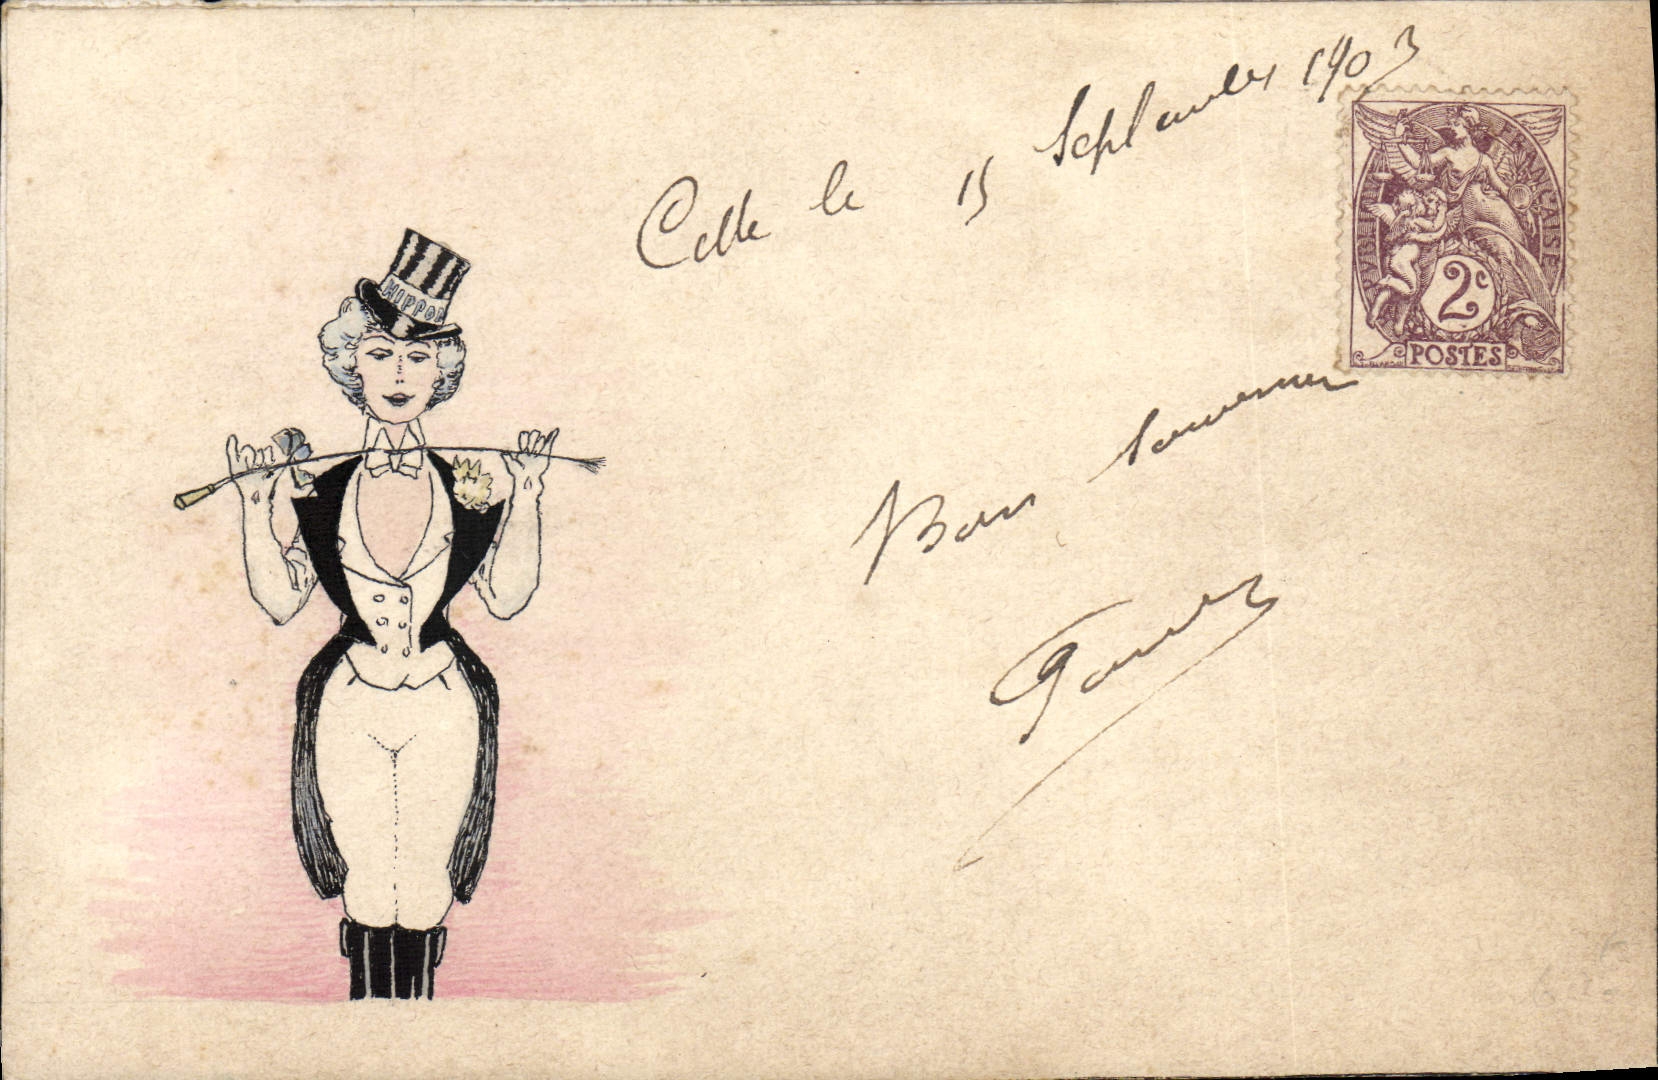 Cette le 15 Septembre 1903
HIPPOD
RÉPUBLIQUE FRANÇAISE
2c
POSTES
Bon souvenir